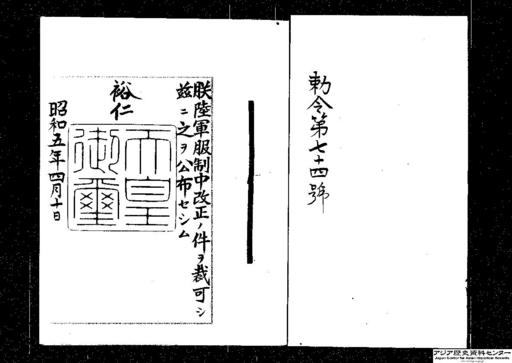 勅令第七十四號
朕陸軍服制中改正ノ件ヲ裁可シ
茲ニ之ヲ公布セシム
裕仁
天皇
御璽
昭和五年四月十日
アジア歴史資料センター
Japan Center for Asian Historical Records